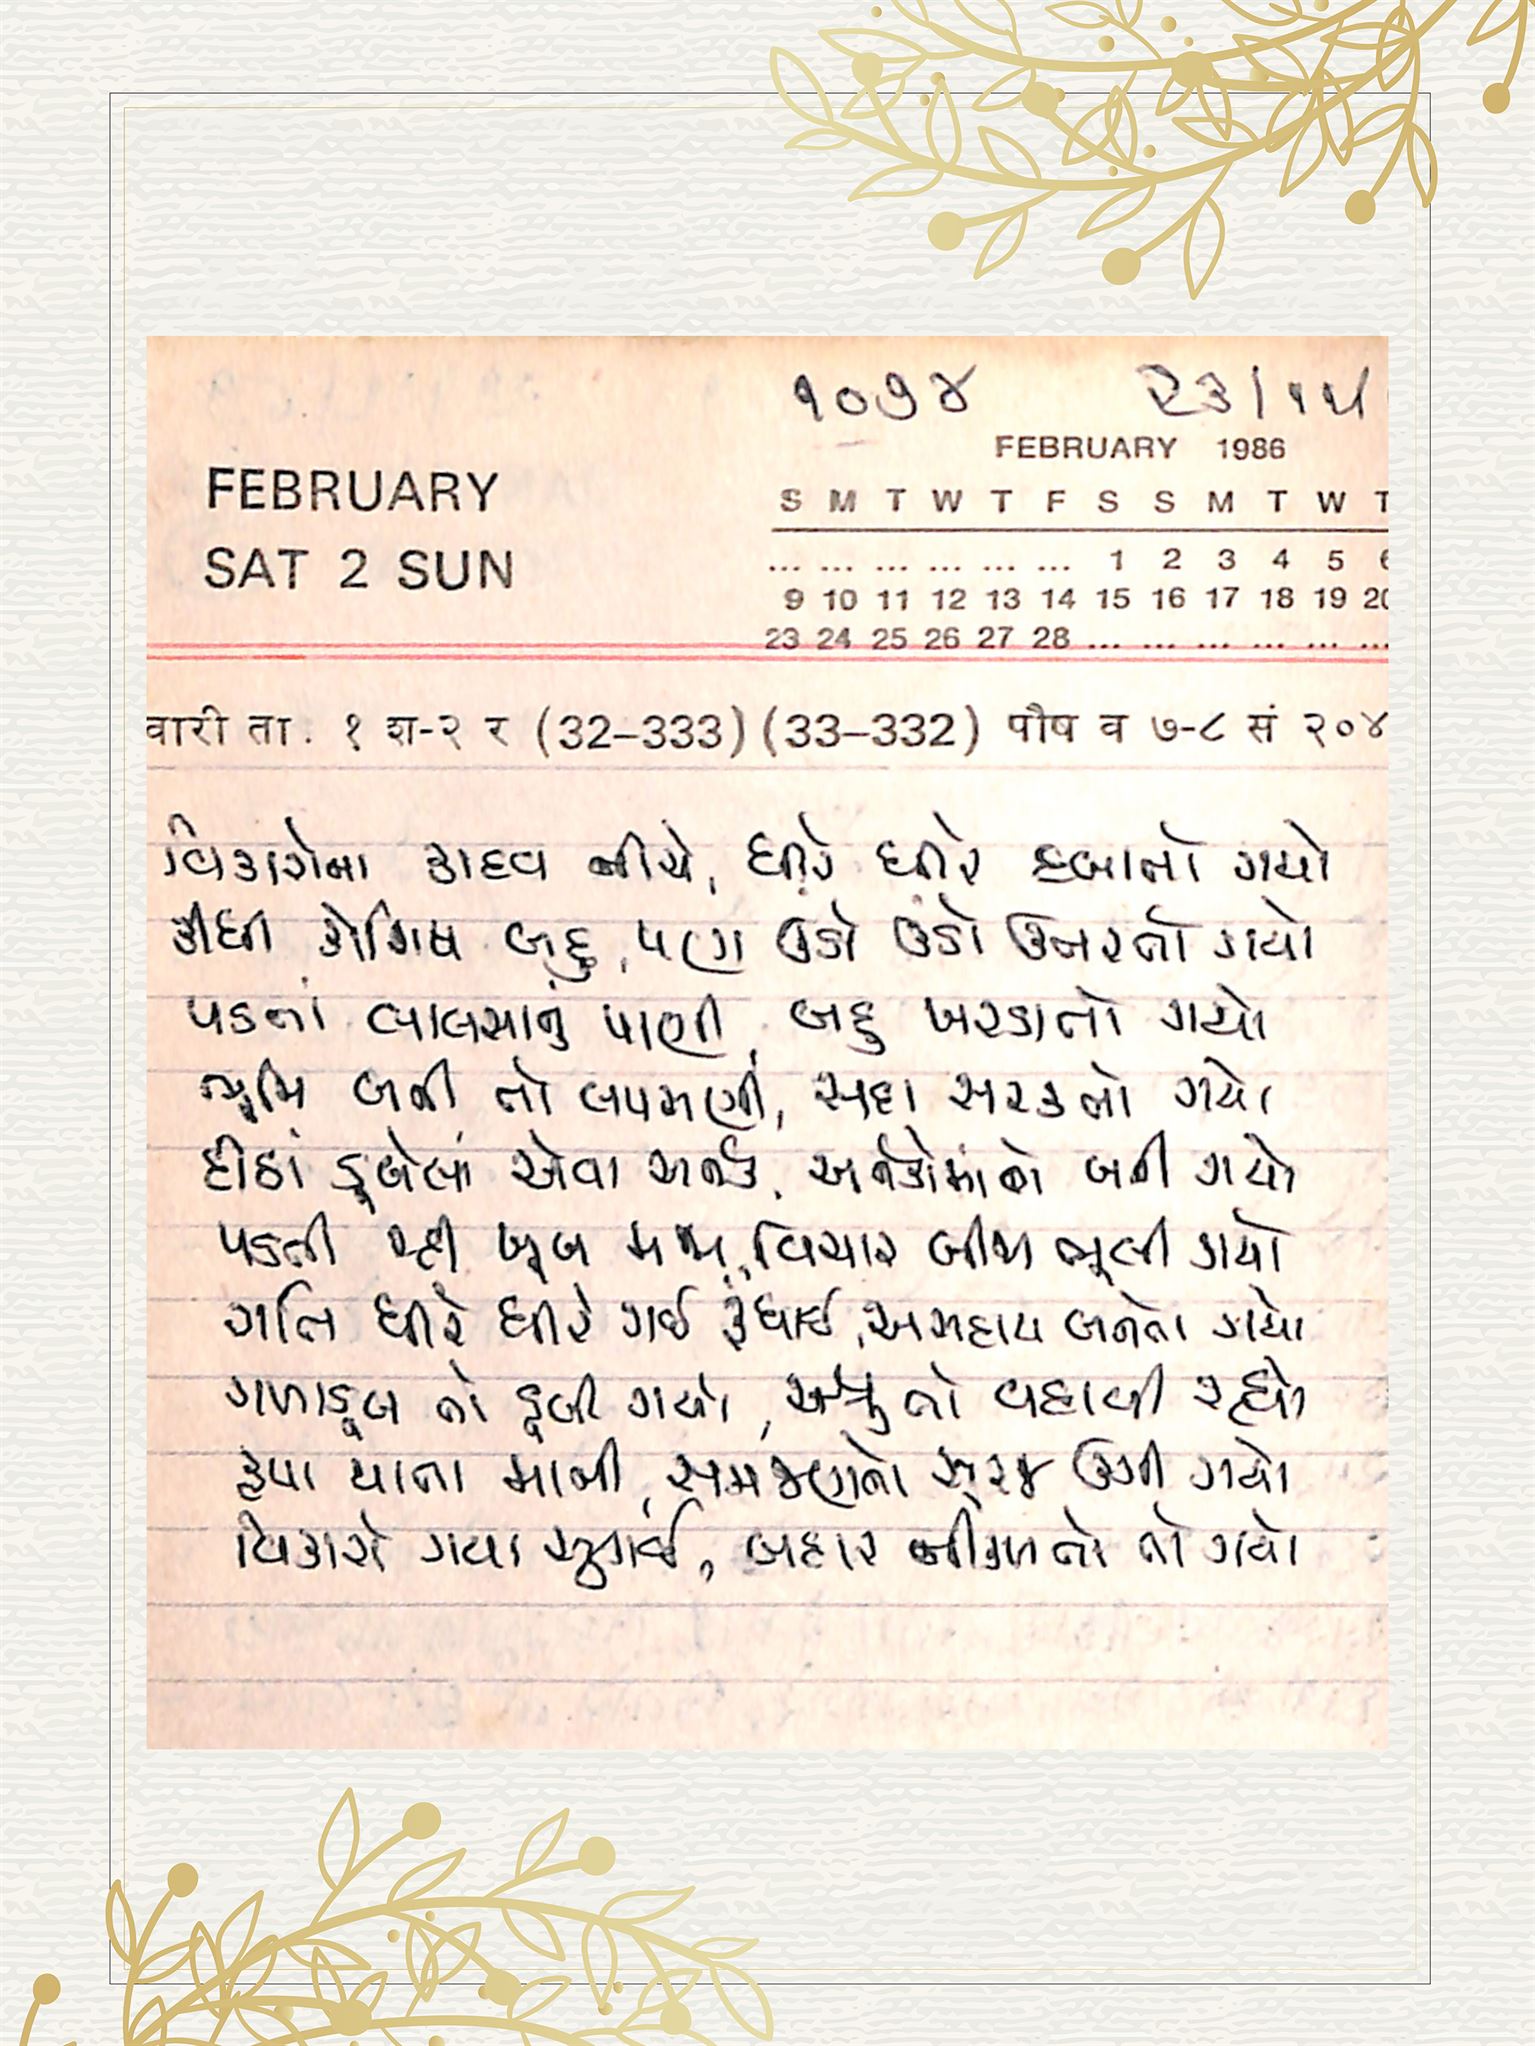 ૧૦૭૪ ૨૩/૧૫
FEBRUARY 1986
FEBRUARY
SAT 2 SUN
S M T W T F S S M T W T
... ... ... ... ... ... 1 2 3 4 5 6
9 10 11 12 13 14 15 16 17 18 19 20
23 24 25 26 27 28 ... ... ... ... ... ...
वारी ता. १ श-२ र (32–333) (33–332) पौष व ७-८ सं २०४
વિકારોના કાદવ નીચે, ધીરે ધીરે દબાતો ગયો
કીધી કોશિષ બહુ, પણ ઉંડો ઉંડો ઉતરતો ગયો
પડતાં લાલસાનું પાણી, બહુ ખરડાતો ગયો
ભૂમિ બની તો લપસણી, સદા સરકતો ગયો
દીઠાં ડૂબેલાં એવા અનેક, અનેકોમાંનો બની ગયો
પડતી રહી ખૂબ મજા, વિચાર બીજા ભૂલી ગયો
ગતિ ધીરે ધીરે ગઈ રૂંધાઈ, અસહાય બનતો ગયો
ગળાડૂબ તો ડૂબી ગયો, અશ્રુ તો વહાવી રહ્યો
કૃપા થાતા માની, સમજણનો સૂરજ ઉગી ગયો
વિકારો ગયા સુકાઈ, બહાર નીકળતો તો ગયો